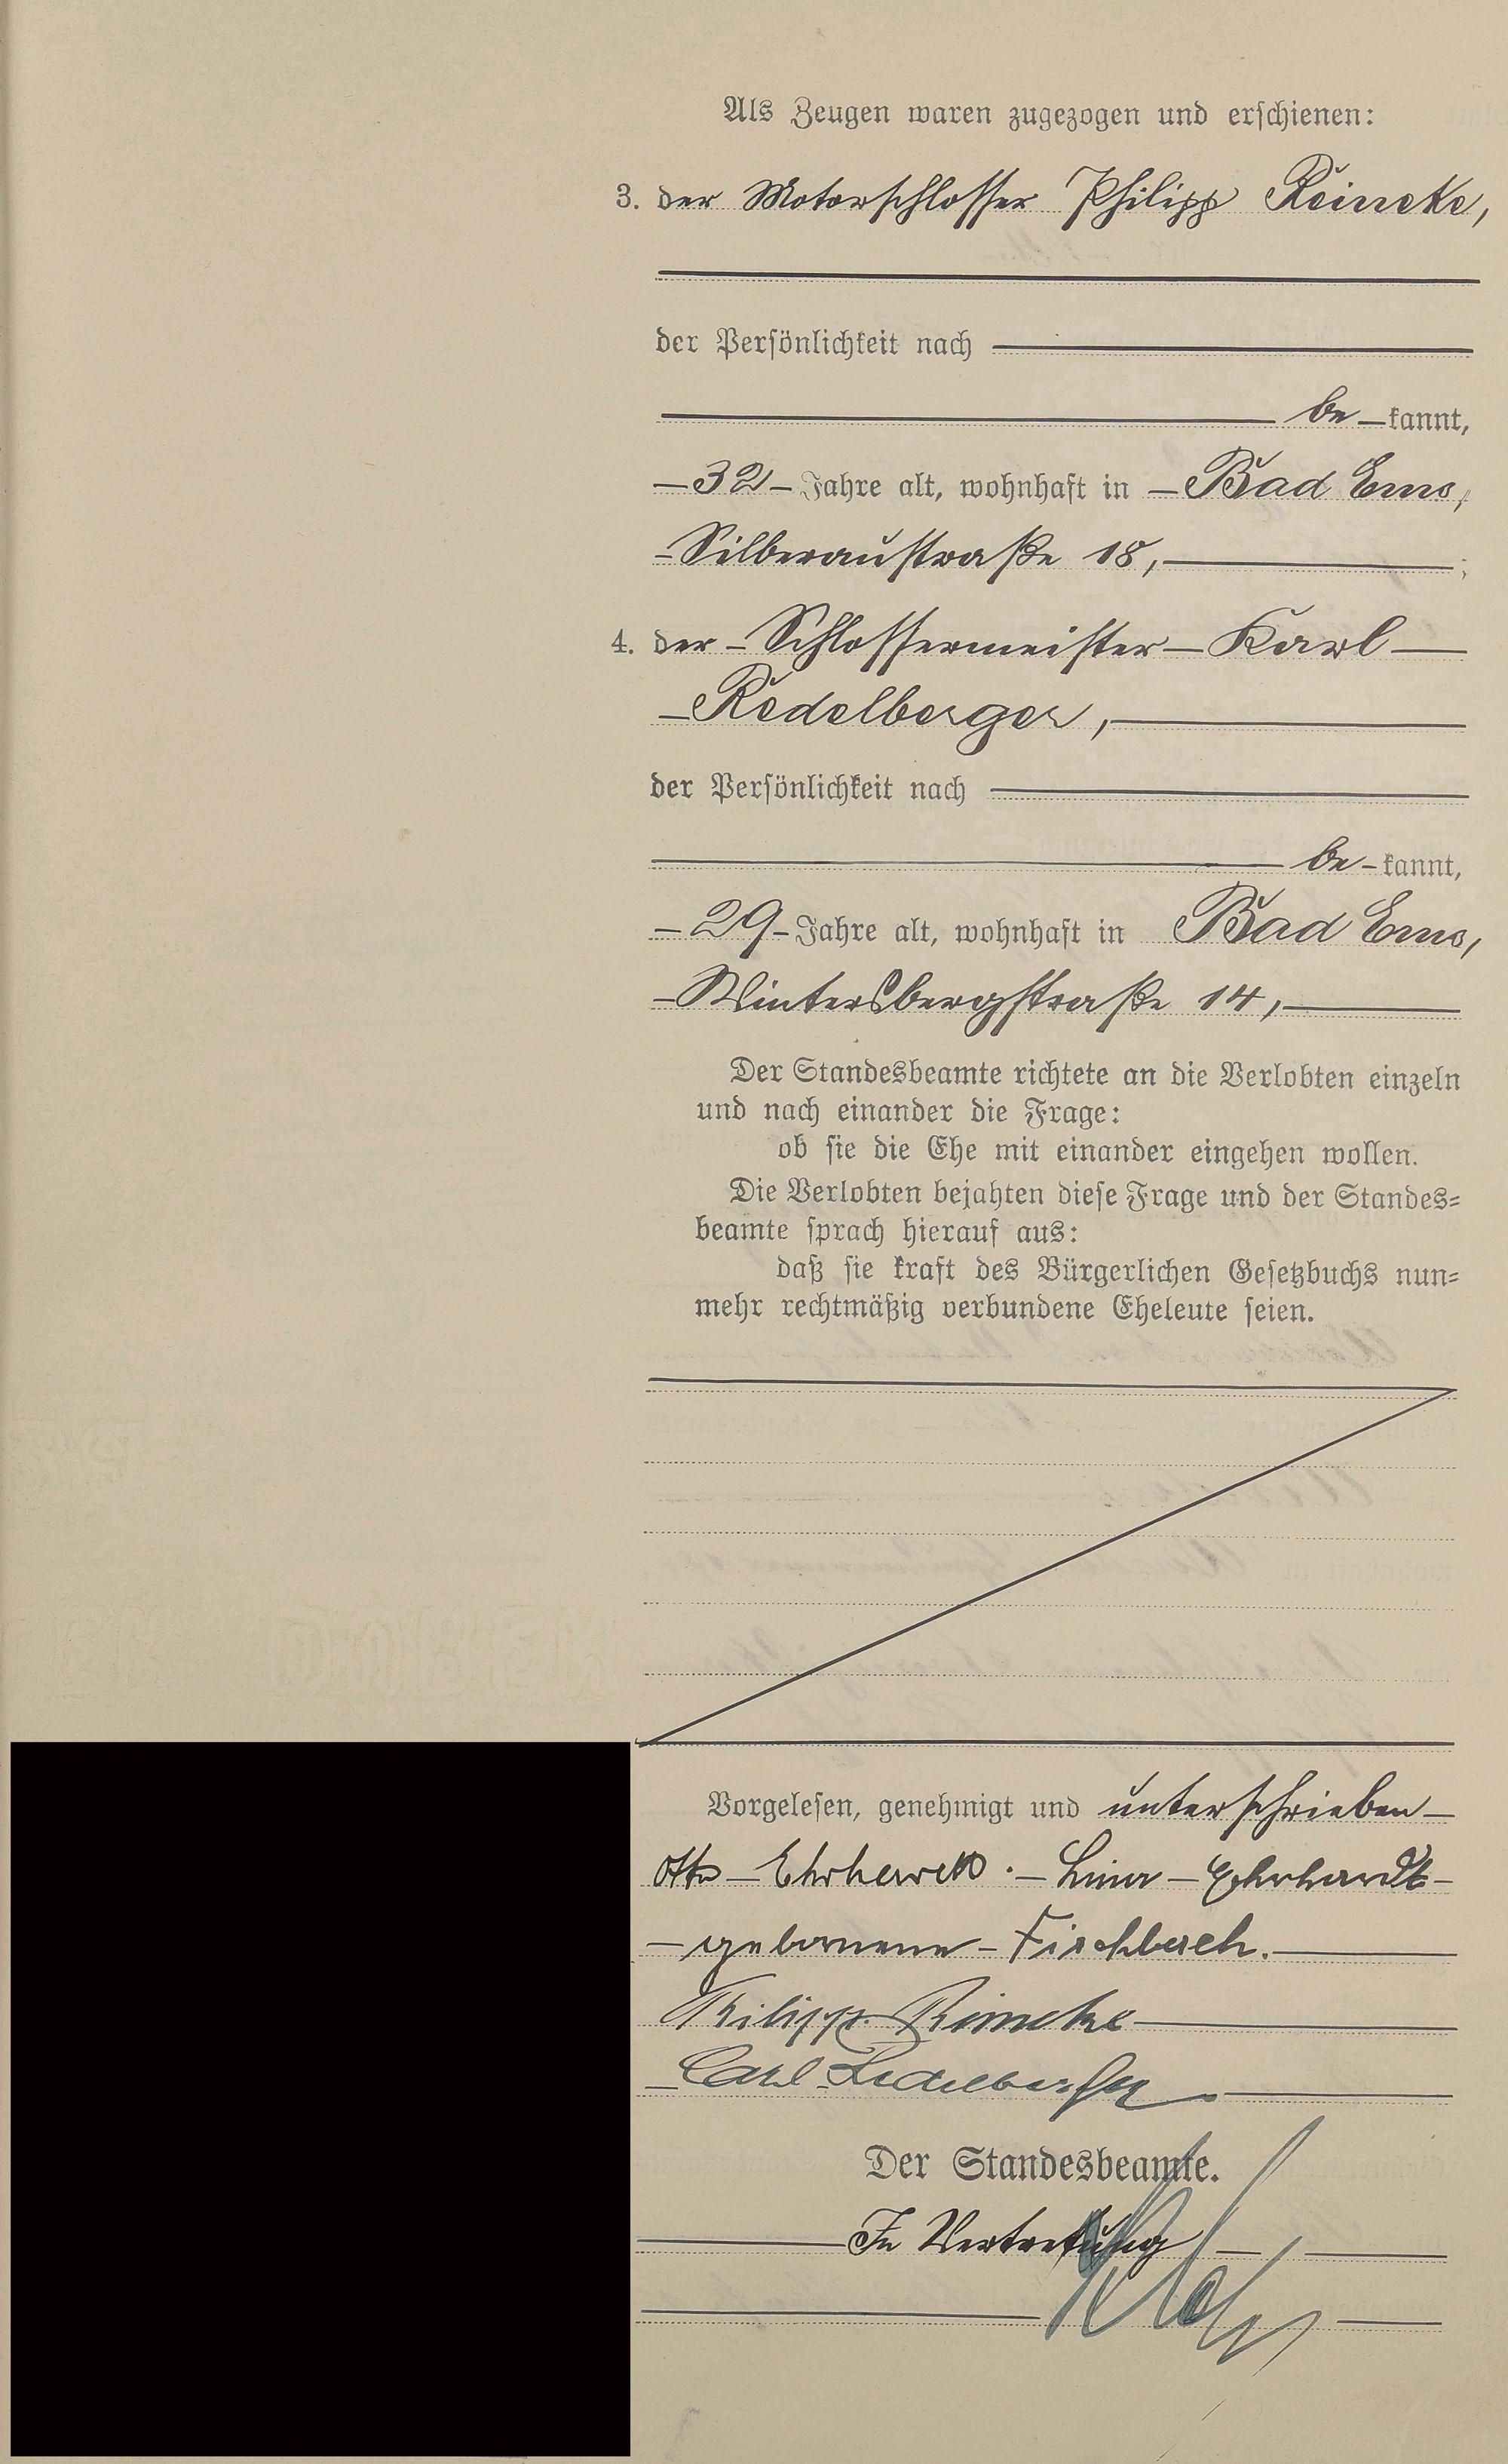 Als Zeugen waren zugezogen und erschienen:
3. der Motorschlosser Philipp Reincke,
der Persönlichkeit nach
be-kannt,
-32- Jahre alt, wohnhaft in - Bad Ems,
- Silberaustraße 18, ;
4. der - Schlossermeister - Karl
- Redelberger,
der Persönlichkeit nach
be-kannt,
- 29 - Jahre alt, wohnhaft in Bad Ems,
- Wintersbergstraße 14,
Der Standesbeamte richtete an die Verlobten einzeln
und nach einander die Frage:
ob sie die Ehe mit einander eingehen wollen.
Die Verlobten bejahten diese Frage und der Standes-
beamte sprach hierauf aus:
daß sie kraft des Bürgerlichen Gesetzbuchs nun-
mehr rechtmäßig verbundene Eheleute seien.
Vorgelesen, genehmigt und unterschrieben
Otto - Ehrhardt. - Lina - Ehrhardt
- geborene - Fischbach.
Philipp Reincke
Carl Redelberger.
Der Standesbeamte.
In Vertretung